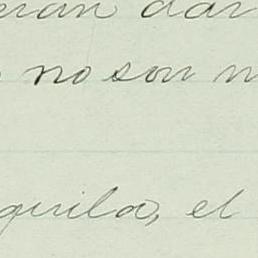 eran dar
no son n
quila, el